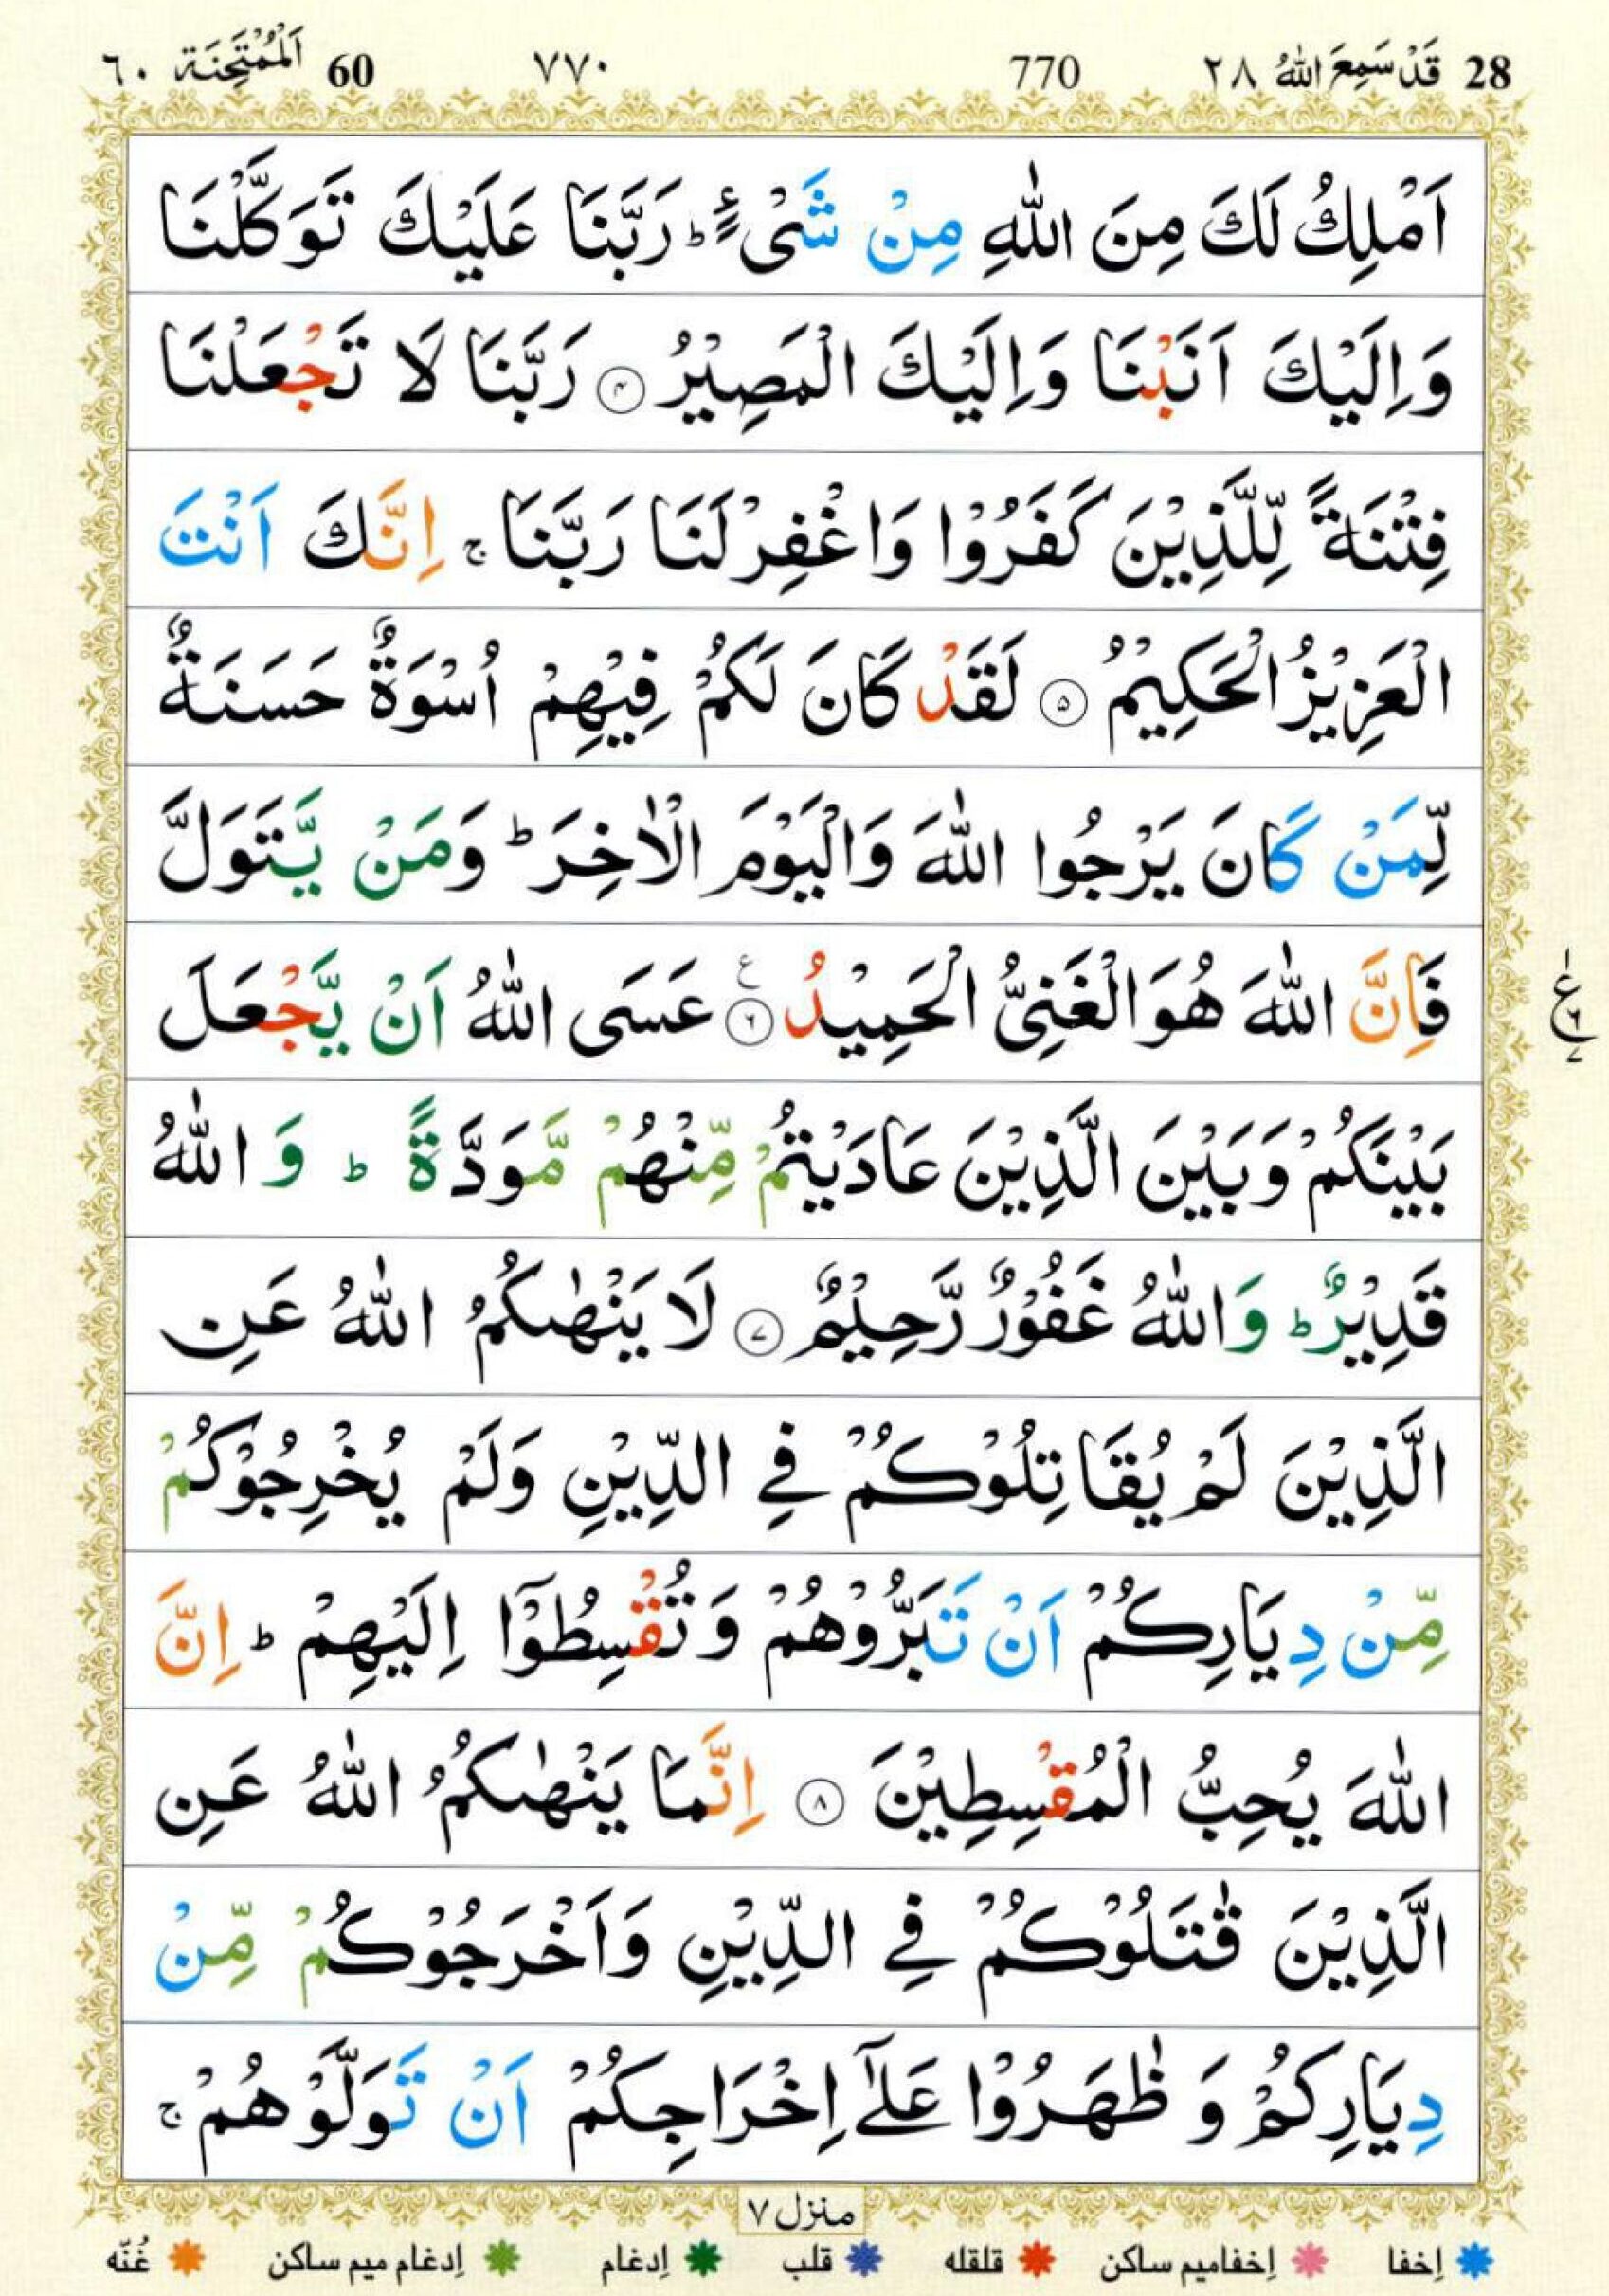 28 قَدْ سَمِعَ اللّٰهُ ٢٨ 770 ٧٧٠ 60 اَلْمُمْتَحِنَة ٦٠
اَمْلِكُ لَكَ مِنَ اللّٰهِ مِنْ شَیْءٍ ؕ رَبَّنَا عَلَیْكَ تَوَكَّلْنَا
وَاِلَیْكَ اَنَبْنَا وَاِلَیْكَ الْمَصِیْرُ ۴ رَبَّنَا لَا تَجْعَلْنَا
فِتْنَةً لِّلَّذِیْنَ كَفَرُوْا وَاغْفِرْ لَنَا رَبَّنَا ۚ اِنَّكَ اَنْتَ
الْعَزِیْزُ الْحَكِیْمُ ۵ لَقَدْ كَانَ لَكُمْ فِیْهِمْ اُسْوَةٌ حَسَنَةٌ
لِّمَنْ كَانَ یَرْجُوا اللّٰهَ وَالْیَوْمَ الْاٰخِرَ ؕ وَمَنْ یَّتَوَلَّ
فَاِنَّ اللّٰهَ هُوَ الْغَنِیُّ الْحَمِیْدُ ۶ ع عَسَی اللّٰهُ اَنْ یَّجْعَلَ
بَیْنَكُمْ وَبَیْنَ الَّذِیْنَ عَادَیْتُمْ مِّنْهُمْ مَّوَدَّةً ؕ وَ اللّٰهُ
قَدِیْرٌ ؕ وَاللّٰهُ غَفُوْرٌ رَّحِیْمٌ ۷ لَا یَنْهٰىكُمُ اللّٰهُ عَنِ
الَّذِیْنَ لَمْ یُقَاتِلُوْكُمْ فِی الدِّیْنِ وَلَمْ یُخْرِجُوْكُمْ
مِّنْ دِیَارِكُمْ اَنْ تَبَرُّوْهُمْ وَتُقْسِطُوْۤا اِلَیْهِمْ ؕ اِنَّ
اللّٰهَ یُحِبُّ الْمُقْسِطِیْنَ ۸ اِنَّمَا یَنْهٰىكُمُ اللّٰهُ عَنِ
الَّذِیْنَ قٰتَلُوْكُمْ فِی الدِّیْنِ وَاَخْرَجُوْكُمْ مِّنْ
دِیَارِكُمْ وَ ظٰهَرُوْا عَلٰۤی اِخْرَاجِكُمْ اَنْ تَوَلَّوْهُمْ ۚ
منزل ۷
اِخفا اِخفامیم ساکن قلقله قلب اِدغام اِدغام میم ساکن غُنّه